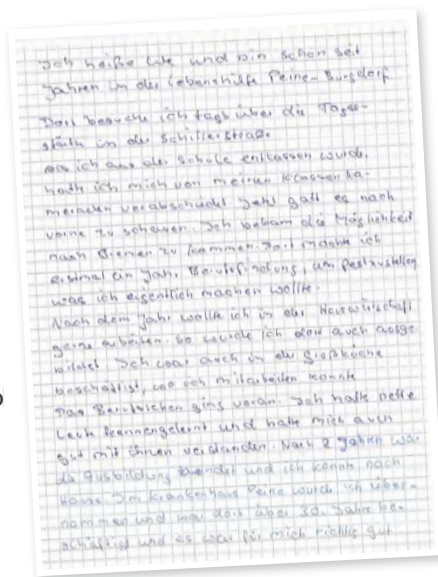 Ich heiße Ute und bin schon seit
Jahren in der Lebenshilfe Peine-Burgdorf
Dort besuche ich tags über die Tages-
stätte in der Schillerstraße
Als ich aus der Schule entlassen wurde,
hatte ich mich von meinen Klassenka-
meraden verabschiedet Jetzt galt es nach
vorne zu schauen. Ich bekam die Möglichkeit
nach Bremen zu kommen. Dort machte ich
erstmal ein Jahr Berufsfindung, um festzustellen
was ich eigentlich machen wollte.
Nach dem Jahr wollte ich in der Hauswirtschaft
gerne arbeiten. So wurde ich dort auch ausge
bildet Ich war auch in der Großküche
beschäftigt, wo ich mitarbeiten konnte
Das Berufsleben ging voran. Ich hatte nette
Leute kennengelernt und hatte mich auch
gut mit ihnen verstanden. Nach 2 Jahren war
die Ausbildung beendet und ich konnte nach
Hause Im Krankenhaus Peine wurde ich über-
nommen und war dort über 30. Jahre be-
schäftigt und es war für mich richtig gut